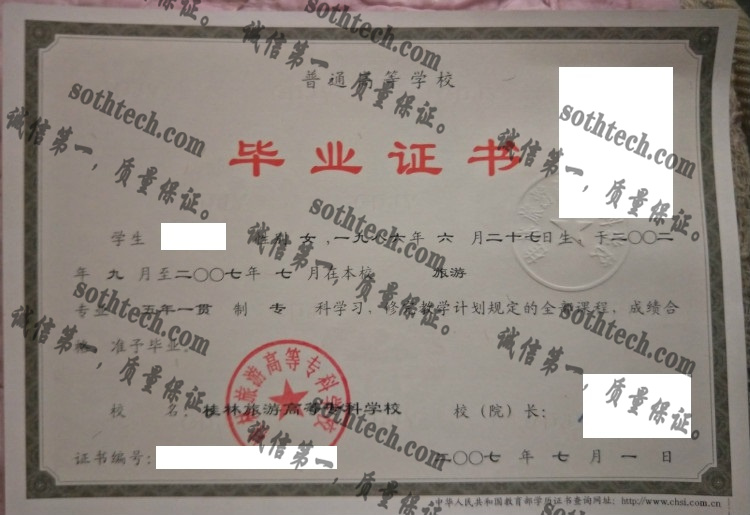 普通高等学校
毕业证书
学生 性别 女,一九八六年 六 月二十七日生,于二〇〇二
年 九 月至二〇〇七年 七 月在本校 旅游
专业 五年一贯 制 专 科学习,修完教学计划规定的全部课程,成绩合
格,准予毕业。
校 名:桂林旅游高等专科学校 校(院)长:
证书编号: 二〇〇七 年 七 月 一 日
中华人民共和国教育部学历证书查询网址:http://www.chsi.com.cn
林旅游高等专科学校
sothtech.com
诚信第一,质量保证。
sothtech.com
诚信第一,质量保证。
sothtech.com
诚信第一,质量保证。
sothtech.com
诚信第一,质量保证。
sothtech.com
诚信第一,质量保证。
sothtech.com
诚信第一,质量保证。
sothtech.com
诚信第一,质量保证。
sothtech.com
诚信第一,质量保
sothtech.com